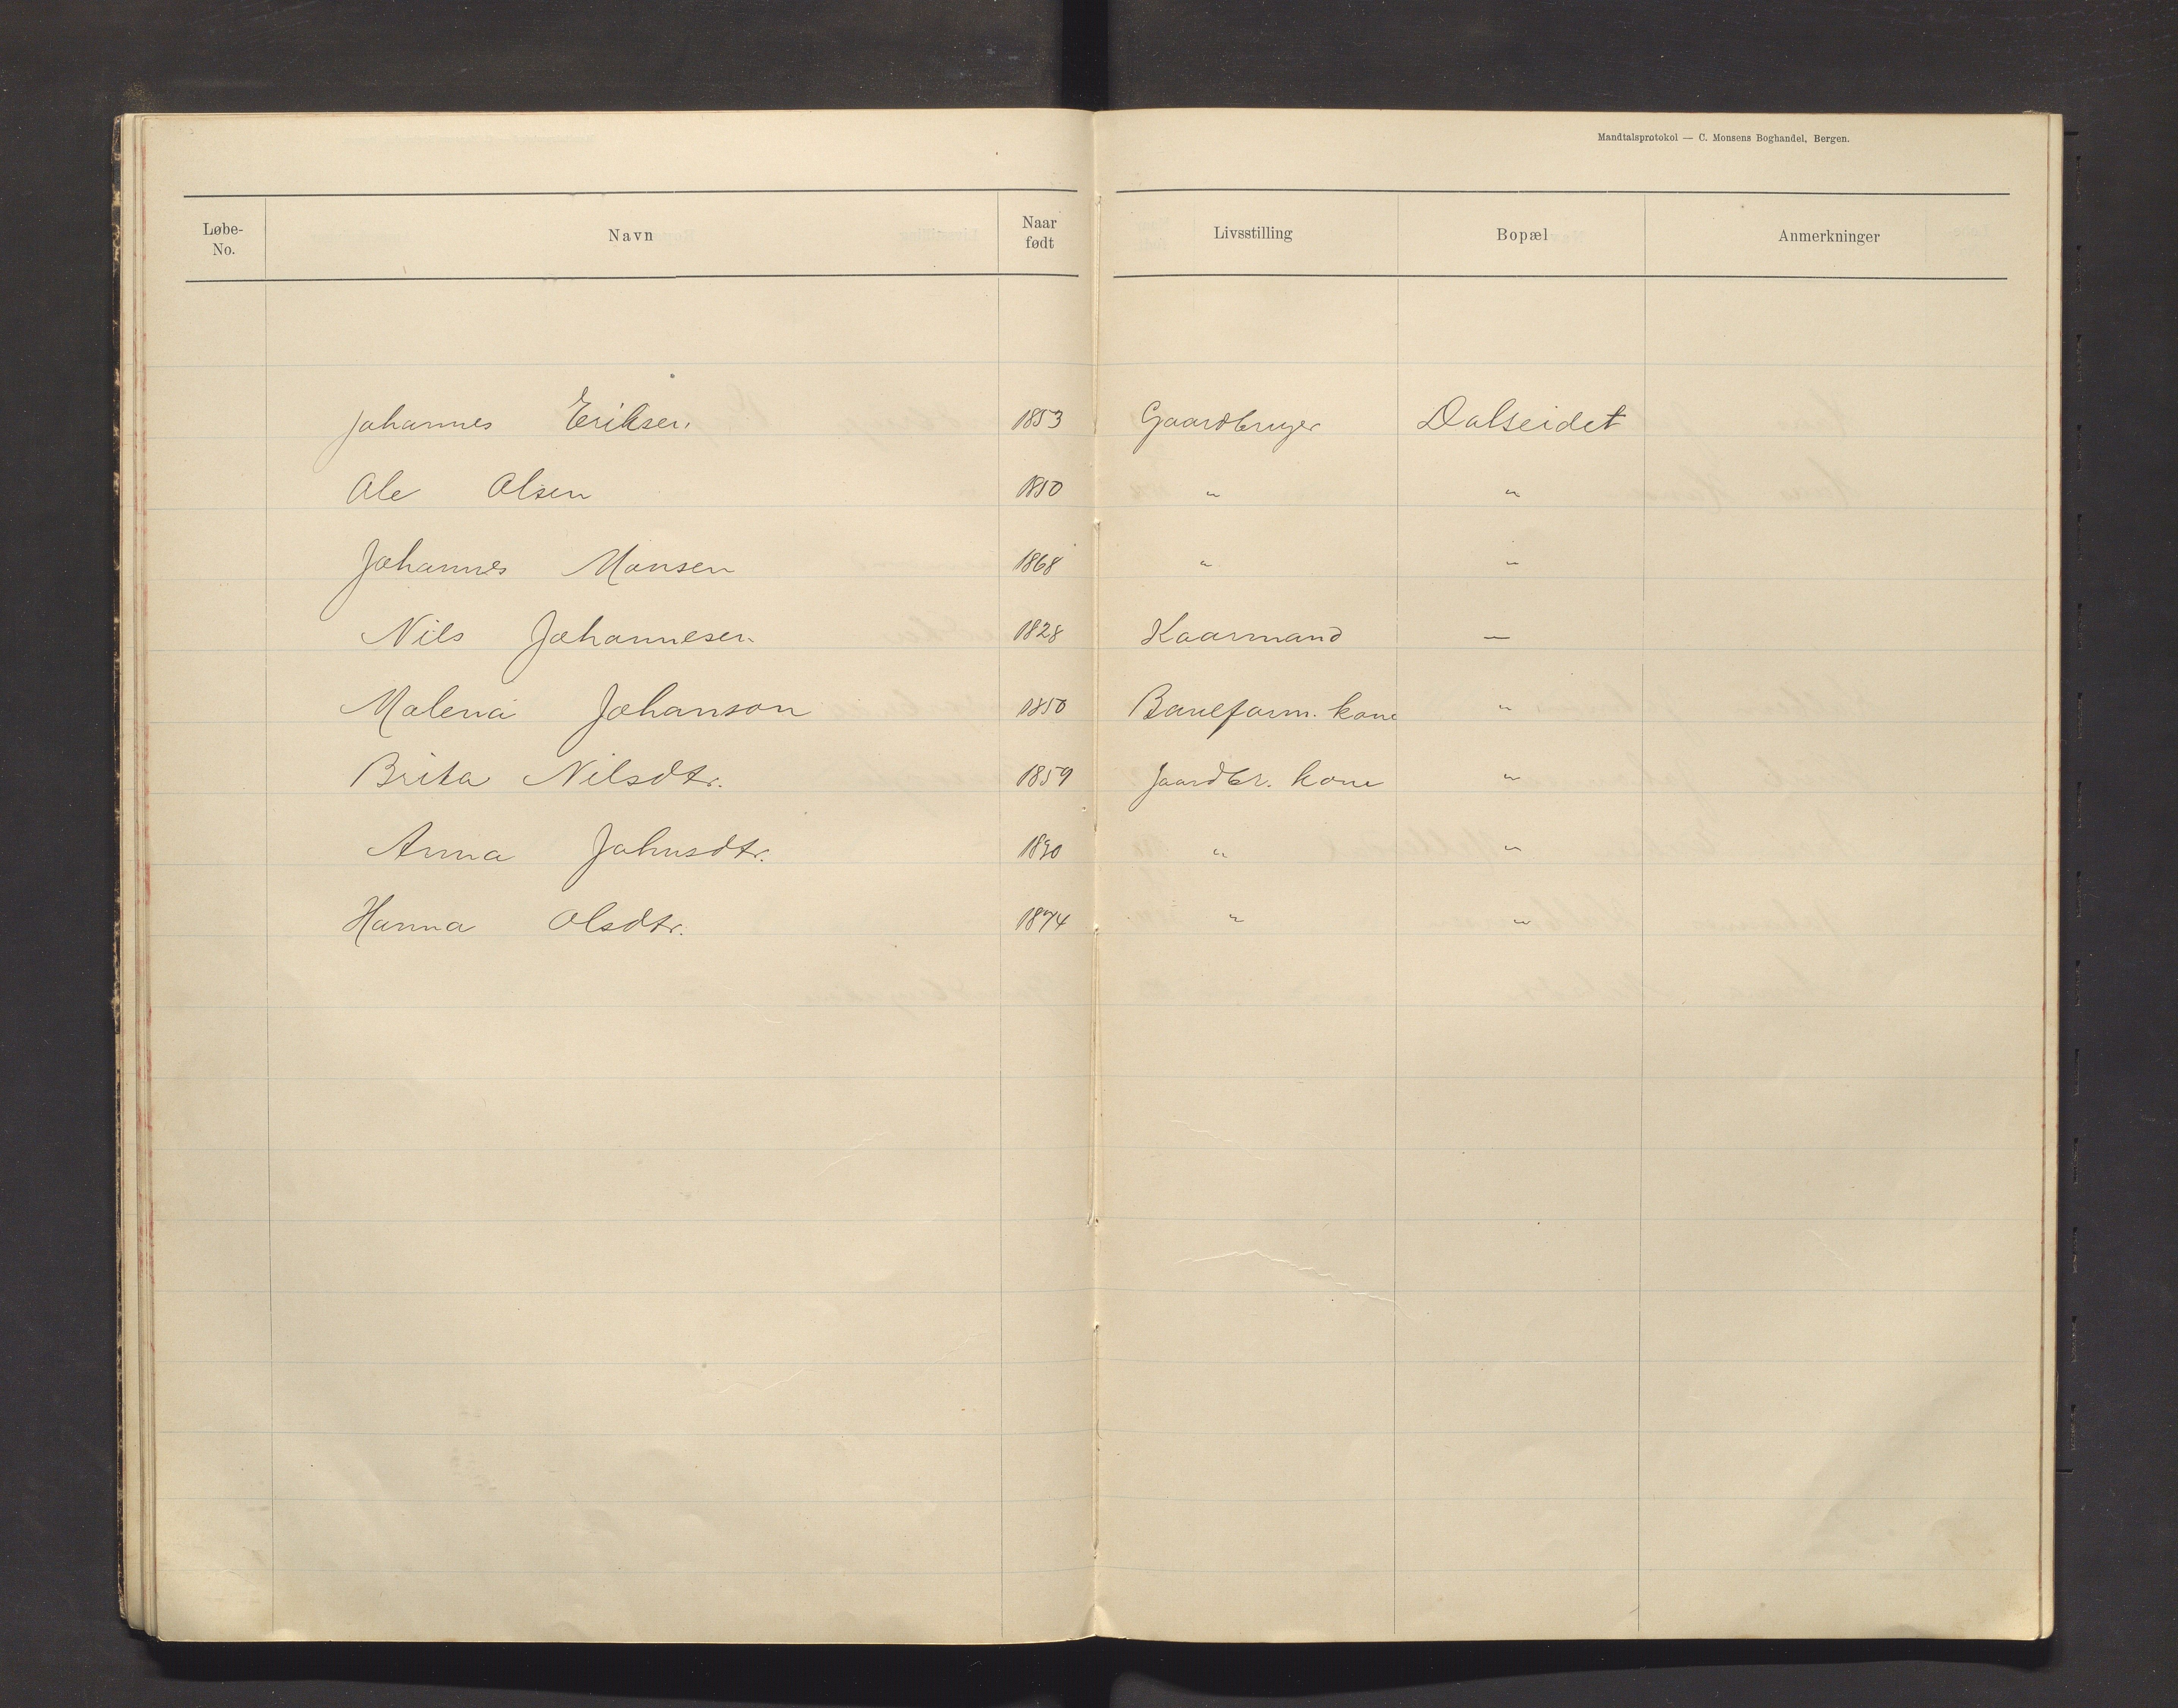 Mandtalsprotokol — C. Monsens Boghandel, Bergen.
Løbe-No. Navn Naar født Livsstilling Bopæl Anmerkninger
Johannes Eriksen. 1853 Gaardbruger Dalseidet
Ole Olsen 1850 " "
Johannes Monsen 1868 " "
Nils Johannesen 1828 Kaarmand —
Malena Johanson 1850 Baneform. kone "
Brita Nilsdtr. 1859 Gaardbr. kone "
Anna Johnsdtr. "  "
Hanna Olsdtr. 1874 " "